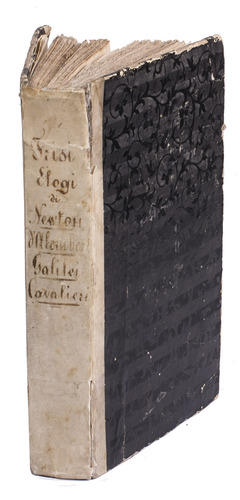 Frisi
Elogi
di
Newton
d'Alember
Galileo
Cavalieri